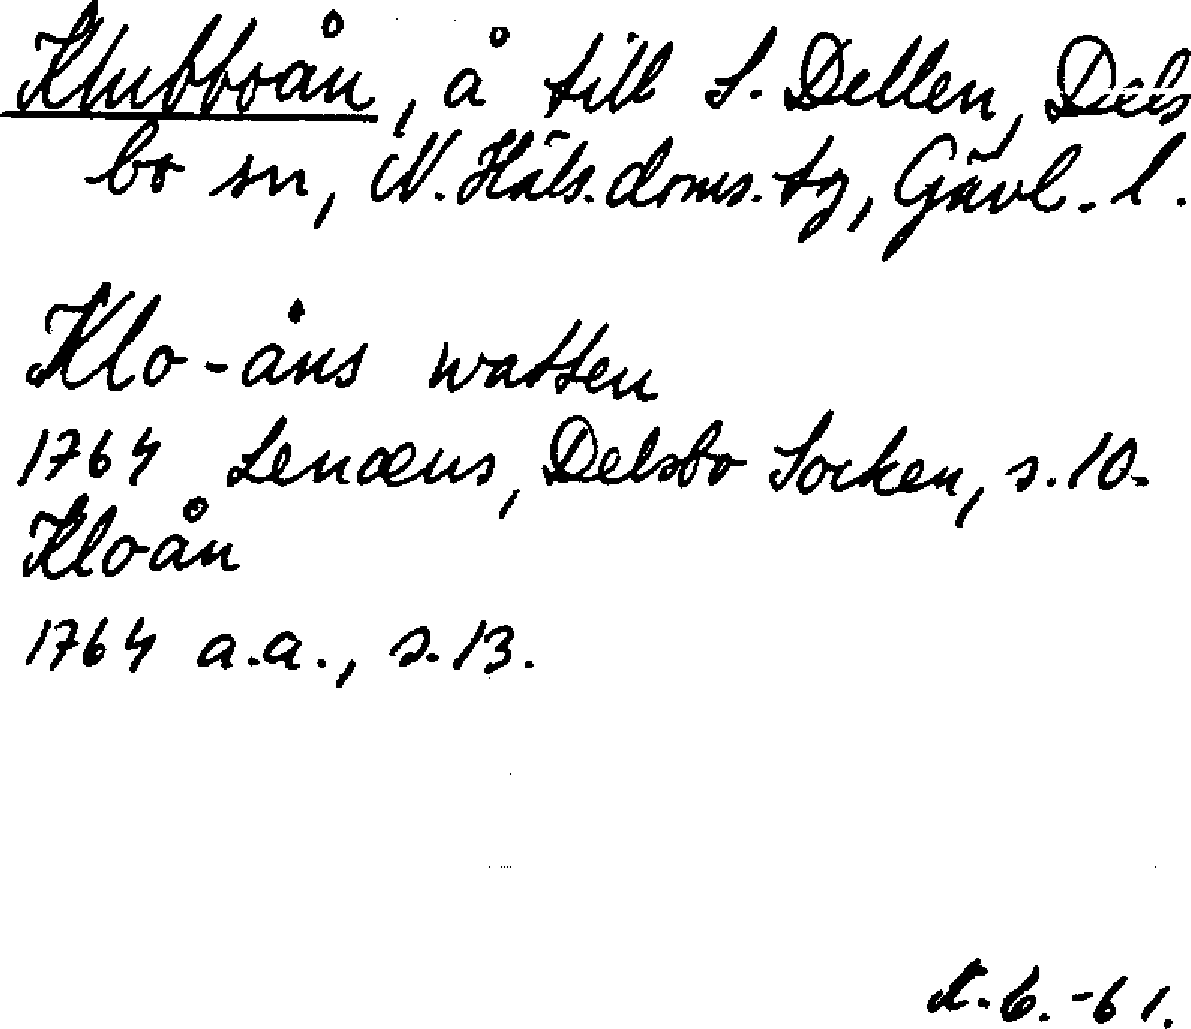 Klubboån, å till S. Dellen, Dels
bo sn, N. Häls. doms. tg, Gävl. l.
Klo-åns watten
1764 Lenæus, Delsbo Socken, s. 10.
Kloån
1764 a.a., s. 13.
K. G. -61.